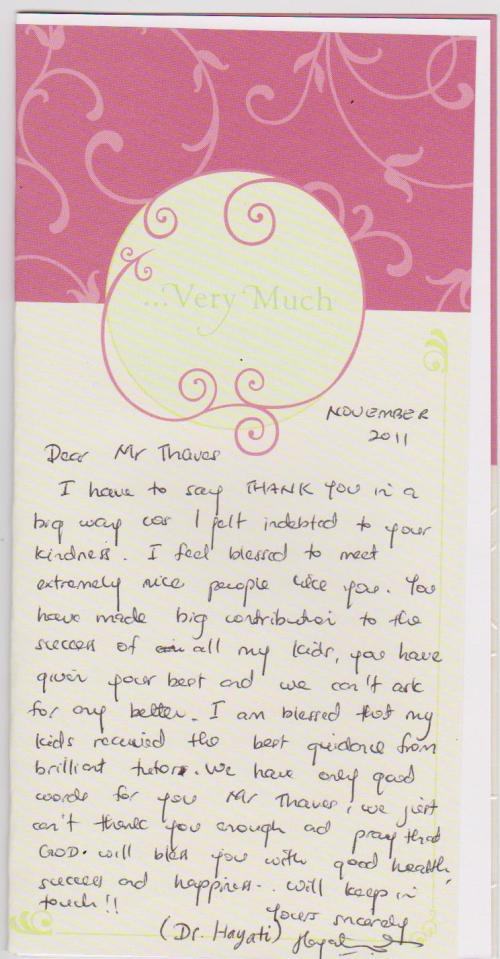 ...Very Much
NOVEMBER
2011
Dear Mr Thaves
I have to say THANK YOU in a
big way cos I felt indebted to your
kindness. I feel blessed to meet
extremely nice people like you. You
have made big contribution to the
success of all my kids, you have
given your best and we can't ask
for any better. I am blessed that my
kids received the best guidance from
brilliant tutors. We have only good
words for you Mr Thaves, we just
can't thank you enough and pray that
GOD. will bless you with good health,
success and happiness.. will keep in
touch!!
Yours sincerely
(Dr. Hayati) Hayati